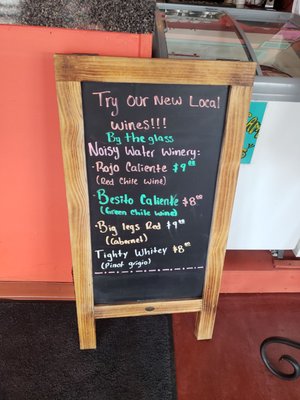 Try Our New Local
wines!!!
By the glass
Noisy Water Winery:
· Rojo Caliente $9⁰⁰
(Red Chile Wine)
· Besito Caliente $8⁰⁰
(Green Chile Wine)
· Big legs Red $9⁰⁰
(Cabernet)
Tighty Whitey $8⁰⁰
(Pinot grigio)